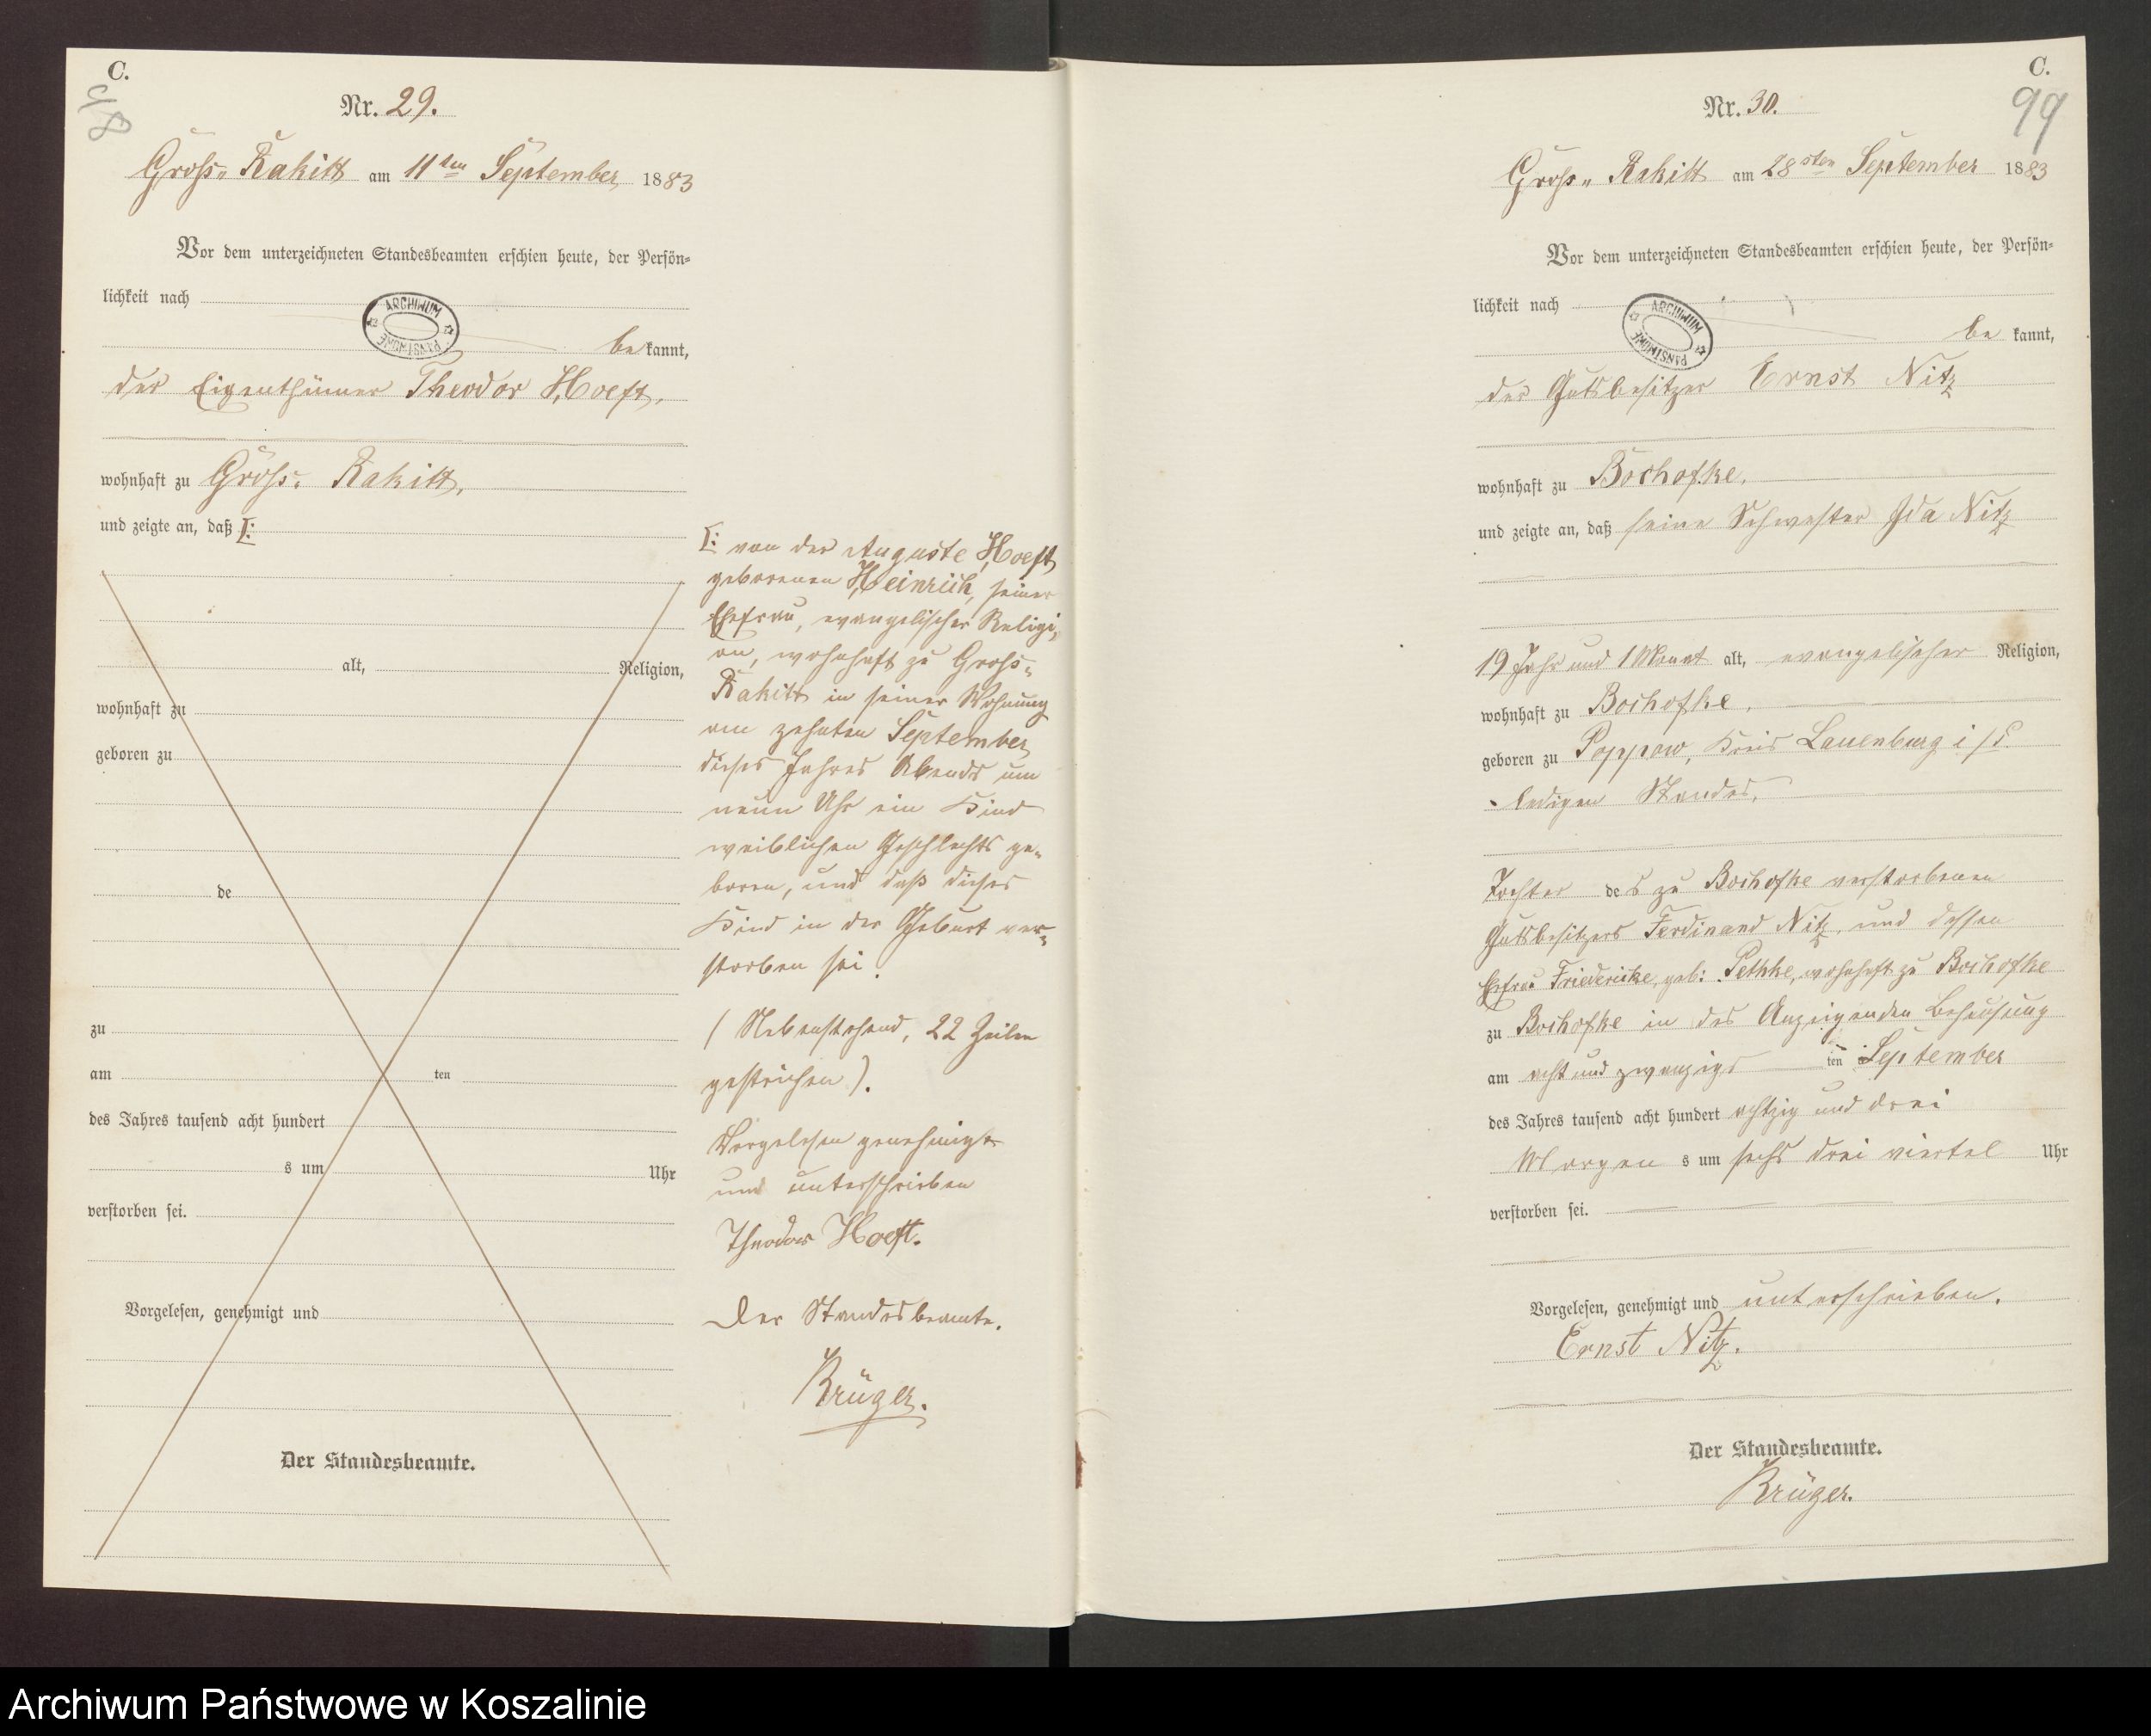 C.
98
Nr. 29.
Gross„ Rakitt am 11ten September 1883
Vor dem unterzeichneten Standesbeamten erschien heute, der Persön=
lichkeit nach
ARCHIWUM PAŃSTWOWE
be kannt,
der Eigenthümer Theodor Hoeft,
wohnhaft zu Gross= Rakitt,
und zeigte an, daß [:
alt, Religion,
wohnhaft zu
geboren zu
de
zu
am ten
des Jahres tausend acht hundert
s um Uhr
verstorben sei.
Vorgelesen, genehmigt und
Der Standesbeamte.
[: von der Auguste Hoeft
geborenen Heinrich, seiner
Ehefrau, evangelischer Religi„
on, wohnhaft zu Gross=
Rakitt in seiner Wohnung
am zehnten September
dieses Jahres Abends um
neun Uhr ein Kind
weiblichen Geschlechts ge=
boren, und daß dieses
Kind in der Geburt ver=
storben sei.
(Nebenstehend, 22 Zeilen
gestrichen).
Vorgelesen genehmigt
und unterschrieben
Theodor Hoeft.
Der Standesbeamte.
Krüger.
C.
99
Nr. 30.
Gross„ Rakitt am 28sten September 1883
Vor dem unterzeichneten Standesbeamten erschien heute, der Persön=
lichkeit nach
ARCHIWUM PAŃSTWOWE
be kannt,
der Gutsbesitzer Ernst Nitz
wohnhaft zu Bochofke,
und zeigte an, daß seine Schwester Ida Nitz
19 Jahr und 1 Monat alt, evangelischer Religion,
wohnhaft zu Bochofke,
geboren zu Poppow, Kreis Lauenburg i/P.
ledigen Standes,
Tochter des zu Bochofke verstorbenen
Gutsbesitzers Ferdinand Nitz, und dessen
Ehefrau Friedericke, geb: Pethke, wohnhaft zu Bochofke
zu Bochofke in des Anzeigenden Behausung
am acht und zwanzigs ten September
des Jahres tausend acht hundert achtzig und drei
Morgen s um sechs drei viertel Uhr
verstorben sei.
Vorgelesen, genehmigt und unterschrieben.
Ernst Nitz.
Der Standesbeamte.
Krüger.
Archiwum Państwowe w Koszalinie